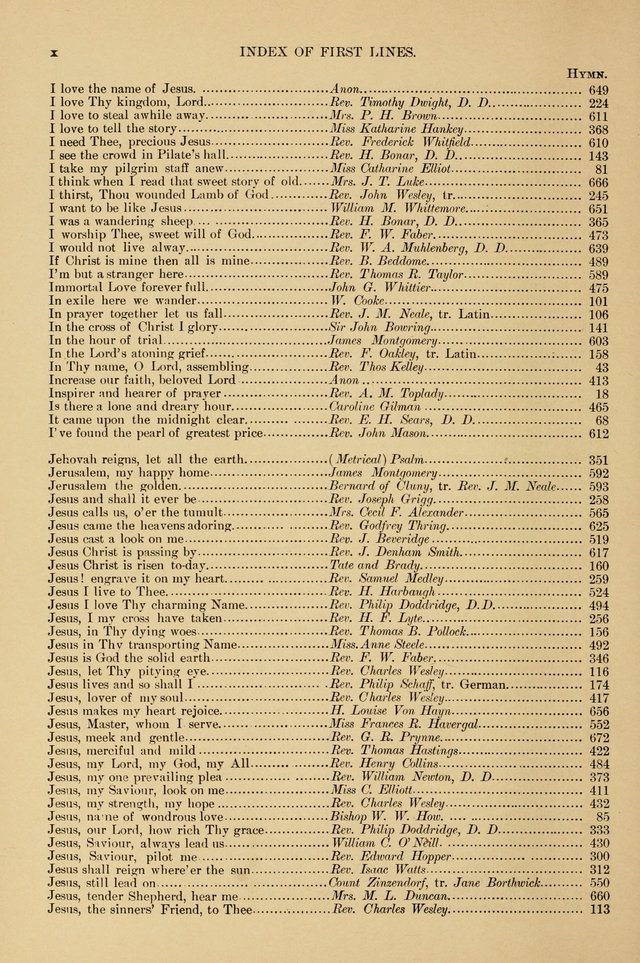 x INDEX OF FIRST LINES.
HYMN.
I love the name of Jesus. Anon. 649
I love Thy kingdom, Lord. Rev. Timothy Dwight, D. D. 224
I love to steal awhile away. Mrs. P. H. Brown. 611
I love to tell the story. Miss Katharine Hankey. 368
I need Thee, precious Jesus. Rev. Frederick Whitfield. 610
I see the crowd in Pilate's hall. Rev. H. Bonar, D. D. 143
I take my pilgrim staff anew. Miss Catharine Elliot. 81
I think when I read that sweet story of old. Mrs. J. T. Luke. 666
I thirst, Thou wounded Lamb of God. Rev. John Wesley, tr. 245
I want to be like Jesus. William M. Whittemore. 651
I was a wandering sheep. Rev. H. Bonar, D. D. 365
I worship Thee, sweet will of God. Rev. F. W. Faber. 473
I would not live alway. Rev. W. A. Muhlenberg, D. D. 639
If Christ is mine then all is mine. Rev. B. Beddome. 489
I'm but a stranger here. Rev. Thomas R. Taylor. 589
Immortal Love forever full. John G. Whittier. 475
In exile here we wander. W. Cooke. 101
In prayer together let us fall. Rev. J. M. Neale, tr. Latin. 106
In the cross of Christ I glory. Sir John Bowring. 141
In the hour of trial. James Montgomery. 603
In the Lord's atoning grief. Rev. F. Oakley, tr. Latin. 158
In Thy name, O Lord, assembling. Rev. Thos Kelley. 43
Increase our faith, beloved Lord Anon. 413
Inspirer and hearer of prayer Rev. A. M. Toplady. 18
Is there a lone and dreary hour. Caroline Gilman. 465
It came upon the midnight clear. Rev. E. H. Sears, D. D. 68
I've found the pearl of greatest price. Rev. John Mason. 612
Jehovah reigns, let all the earth. (Metrical) Psalm. 351
Jerusalem, my happy home. James Montgomery. 592
Jerusalem the golden. Bernard of Cluny, tr. Rev. J. M. Neale. 593
Jesus and shall it ever be. Rev. Joseph Grigg. 258
Jesus calls us, o'er the tumult. Mrs. Cecil F. Alexander. 565
Jesus came the heavens adoring. Rev. Godfrey Thring. 625
Jesus cast a look on me. Rev. J. Beveridge. 519
Jesus Christ is passing by. Rev. J. Denham Smith. 617
Jesus Christ is risen to-day. Tate and Brady. 160
Jesus! engrave it on my heart. Rev. Samuel Medley. 259
Jesus I live to Thee. Rev. H. Harbaugh. 524
Jesus I love Thy charming Name. Rev. Philip Doddridge, D.D. 494
Jesus, I my cross have taken. Rev. H. F. Lyte. 256
Jesus, in Thy dying woes. Rev. Thomas B. Pollock. 156
Jesus in Thy transporting Name. Miss. Anne Steele. 492
Jesus is God the solid earth. Rev. F. W. Faber. 346
Jesus, let Thy pitying eye. Rev. Charles Wesley. 116
Jesus lives and so shall I. Rev. Philip Schaff, tr. German. 174
Jesus, lover of my soul. Rev. Charles Wesley. 417
Jesus makes my heart rejoice. H. Louise Von Hayn. 656
Jesus, Master, whom I serve. Miss Frances R. Havergal. 552
Jesus, meek and gentle. Rev. G. R. Prynne. 672
Jesus, merciful and mild. Rev. Thomas Hastings. 422
Jesus, my Lord, my God, my All. Rev. Henry Collins. 484
Jesus, my one prevailing plea. Rev. William Newton, D. D. 373
Jesus, my Saviour, look on me. Miss C. Elliott. 411
Jesus, my strength, my hope. Rev. Charles Wesley. 432
Jesus, name of wondrous love. Bishop W. W. How. 85
Jesus, our Lord, how rich Thy grace. Rev. Philip Doddridge, D. D. 333
Jesus, Saviour, always lead us. William C. O'Neill. 430
Jesus, Saviour, pilot me. Rev. Edward Hopper. 300
Jesus shall reign where'er the sun. Rev. Isaac Watts. 312
Jesus, still lead on. Count Zinzendorf, tr. Jane Borthwick. 550
Jesus, tender Shepherd, hear me. Mrs. M. L. Duncan. 660
Jesus, the sinners' Friend, to Thee. Rev. Charles Wesley. 113